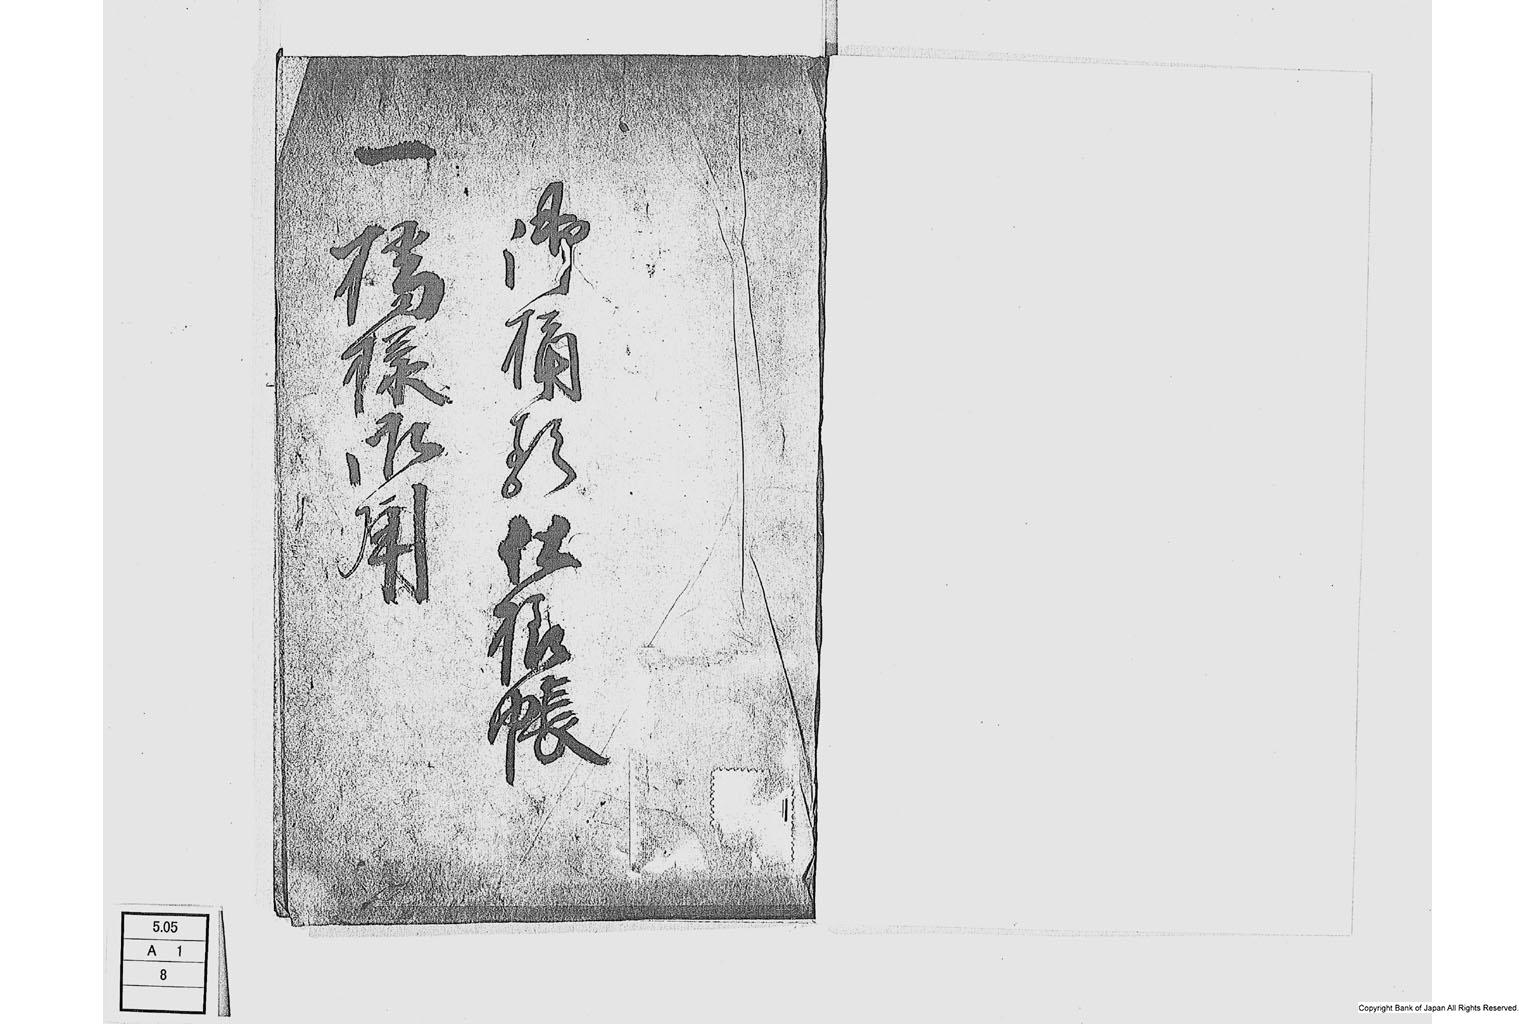 御仕様帳
一橋様御用
5.05
A 1
8
Copyright Bank of Japan All Rights Reserved.